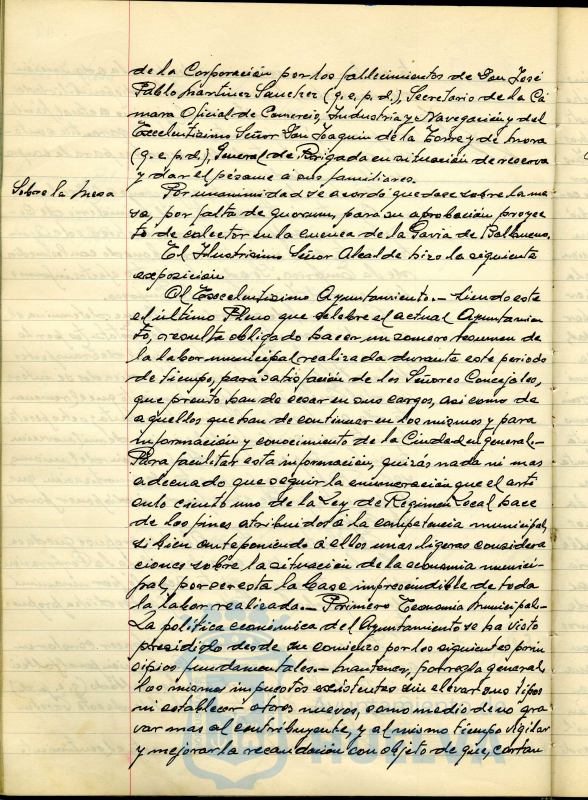 de la Corporación por los fallecimientos de Don José
Pablo Martínez Sanchez (q. e. p. d.), Secretario de la Cá
mara Oficial de Comercio, Industria y Navegación y del
Excelentísimo Señor Don Joaquin de la Torre y de Mora
(q. e. p. d.), General de Brigada en situación de reserva
y dar el pésame a sus familiares.
Sobre la Mesa
Por unanimidad se acordó quedase sobre la me
sa, por falta de quorum, para su aprobación proyec
to de colector en la cuenca de la Gavia de
El Ilustrisimo Señor Alcalde hizo la siguiente
exposición
Al Excelentisimo Ayuntamiento.- Siendo este
el último Pleno que celebre el actual Ayuntamien
to, resulta obligado hacer un somero resumen de
la labor municipal realizada durante este periodo
de tiempo, para satisfación de los Señores Concejales,
que pronto han de cesar en sus cargos, asi como de
aquellos que han de continuar en los mismos y para
información y conocimiento de la Ciudad en general.-
Para facilitar esta información, quizás nada ni mas
adecuado que seguir la enumeración que el arti
culo ciento uno de la Ley de Regimen Local hace
de los fines atribuidos á la competencia municipal,
si bien anteponiendo á ellos unas ligeras considera
ciones sobre la situación de la economia munici-
pal, por ser esta la base imprescindible de toda
la labor realizada.- Primero Economia Municipal.-
La politica económica del Ayuntamiento se ha visto
presidido desde su comienzo por los siguientes prin
cipios fundamentales.- Mantener, por regla general,
los mismos impuestos existentes sin elevar sus tipos
ni establecer otros nuevos, como medio de no gra
var mas al contribuyente, y al mismo tiempo vigilar
y mejorar la recaudación con objeto de que, contan
HUELVA